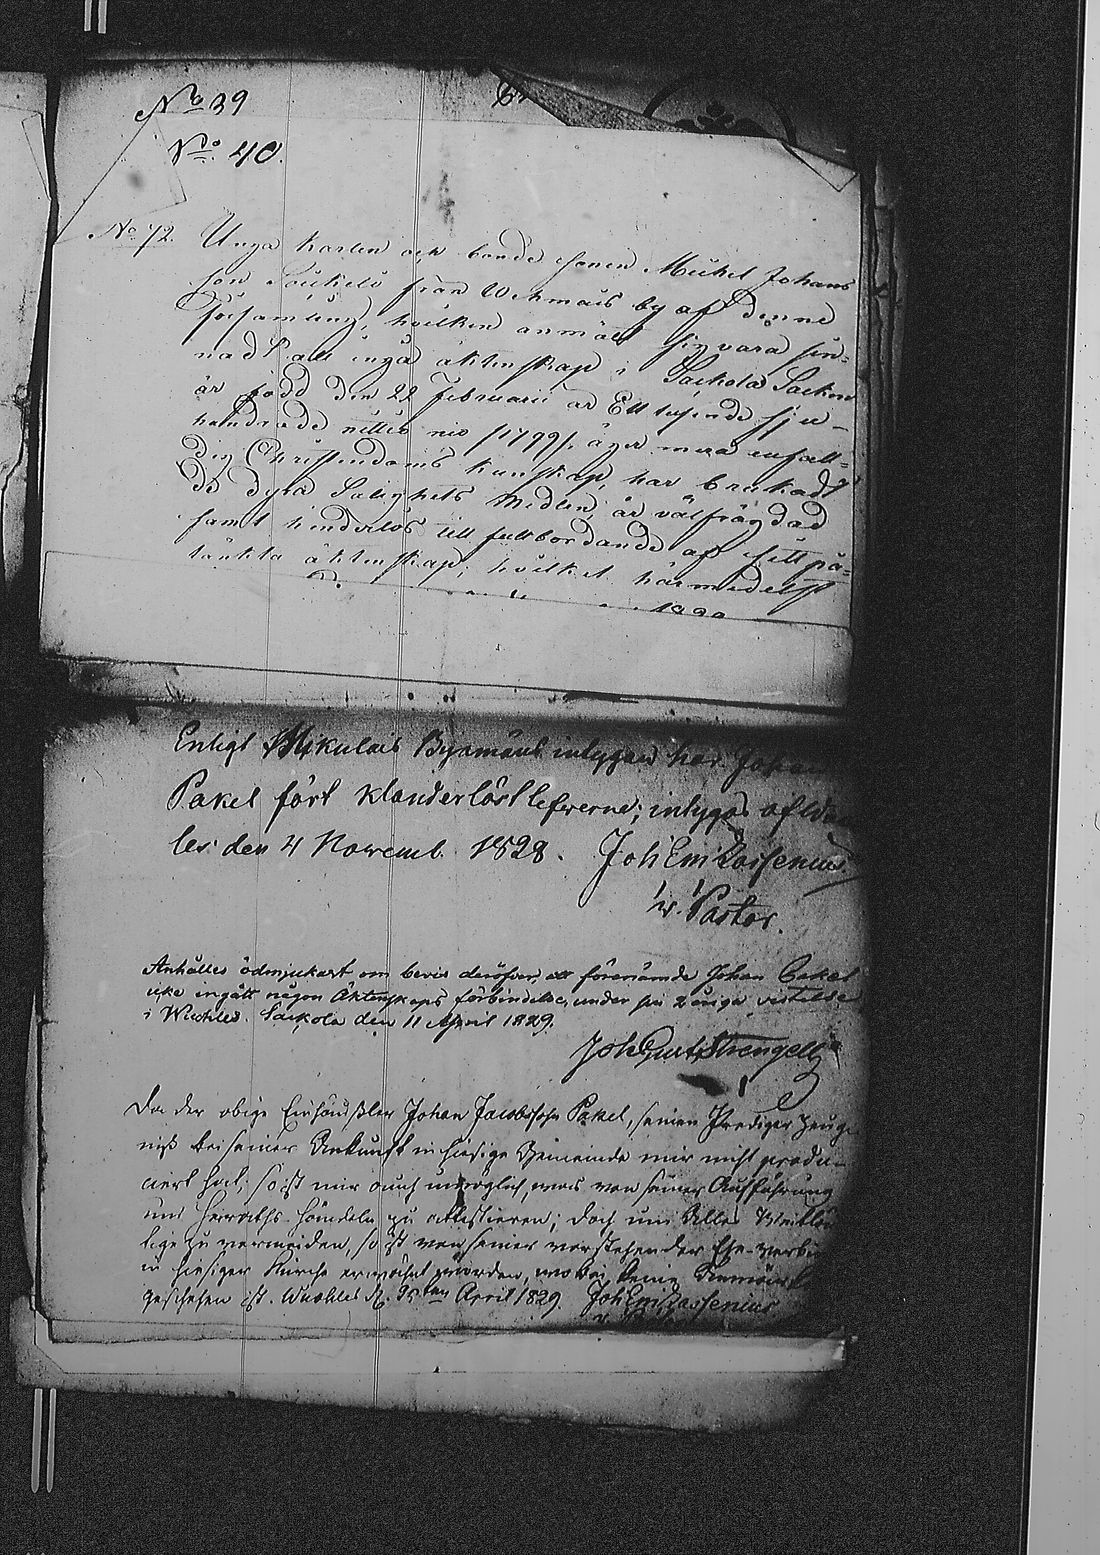 No 39
No 40.
No 72. Unga karlen och bondesonen Mickel Johans
son Soukelo från Wehmais by af denne
församling, hvilken anmält sig vara sin-
nad att ingå äktenskap i Sackola Socken
är född den 22 Februarii år Ett tusende sju-
hundrade nittio nio /1799/. äger mera enfal-
dig Christendoms kunskap, har brukadt
de dyra Salighets Medlen, är välfrägdad
samt hinderlös till fullbordande af sitt på-
tänkta äktenskap; hvilket härmedelst
Enligt Nikulais Byamäns intygan har Johan
Pakel fört klanderlöst lefverne; intygas af Wuo
les den 4 Novemb. 1828. Joh Em Zassenius.
v. Pastor.
Anhålles ödmjukast om bevis deröfver, att förenämde Johan Pakel
icke ingått någon Äktenskaps förbindelse, under sin 2 åriga vistelse
i Wuohles. Sackola den 11 April 1829.
Joh Gust Strengell
Da der obige Einhäusler Johan Jacobssohn Pakel, seinen Prediger Zeug-
niß bei seiner Ankunft in hiesige Gemeinde mir nicht produ-
ciert hat; so ist mir auch unmöglich, was von seiner Aufführung
und Heiraths-Händeln zu attestieren; doch um Alles
zu vermeiden, so ist von seiner vorstehender Ehe-verbin
in hiesiger Kirche erwähnt worden, wobei keine
geschehen ist. Wuohles d. 25ten April 1829. Joh Em Zassenius